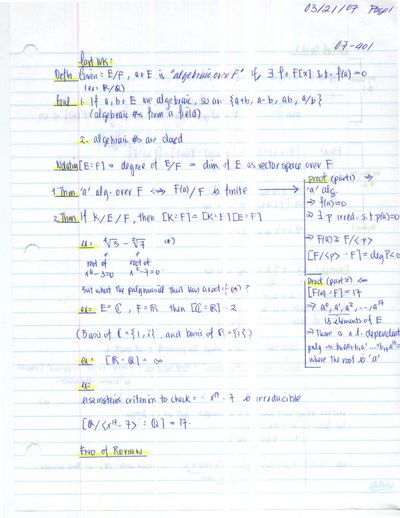 03/21/07 Page 1
07-401
Last Wk:
Defn Given: E/F, a∈E is "algebraic over F" if ∃ f∈F[x] s.t. f(a)=0
(ex: R/Q)
Goal 1. If a, b∈E are algebraic, so are {a+b, a-b, ab, a/b}
(algebraic #s form a field)
2. algebraic #s are closed
Notation [E:F] = degree of E/F = dim of E as vector space over F
1. Thm 'a' alg. over F ⟺ F(a)/F is finite ⟶
2. Thm If K/E/F, then [K:F] = [K:E][E:F]
ex: ∜3 - ∜7 (*)
root of root of
but what the polynomial that has a root of (*) ?
ex: E=C, F=R then [C:R]=2
(Basis of C = {1, i} and basis of R = {1})
ex: [R:Q] = ∞
ex:
eisenstein's criterion to check: x^17 - 7 is irreducible
[Q/<x^17-7> : Q] = 17
END OF REVIEW
proof (part 1) ⇒
'a' alg.
⇒ f(a)=0
⇒ ∃ p irred. s.t p(a)=0
⇒ F(a) ≅ F/<p>
[F/<p> : F] = deg P<∞
proof (part 2) ⇐
[F(a):F] = 17
⇒ a^0, a^1, a^2, ..., a^17
18 elements of E
⇒ There is a l. dependent
poly ⇒ b0a0+b1a1...+b17a17=0
where the root is 'a'